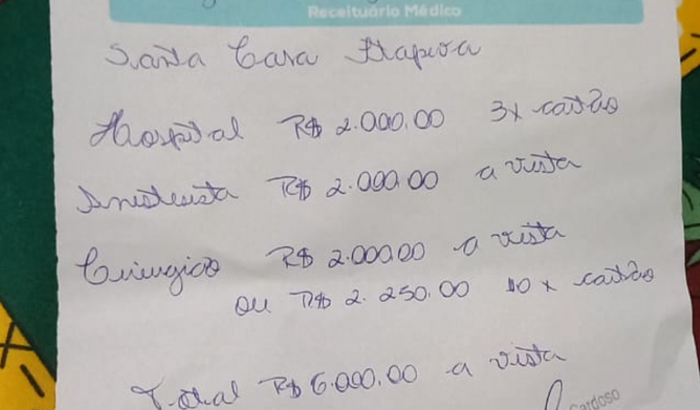 Receituário Médico
Santa Casa Itapeva
Hospital R$ 2.000.00 3x cartão
Anestesista R$ 2.000.00 a vista
Cirurgião R$ 2.000.00 a vista
ou R$ 2.250.00 10x cartão
Total R$ 6.000.00 a vista
Cardoso